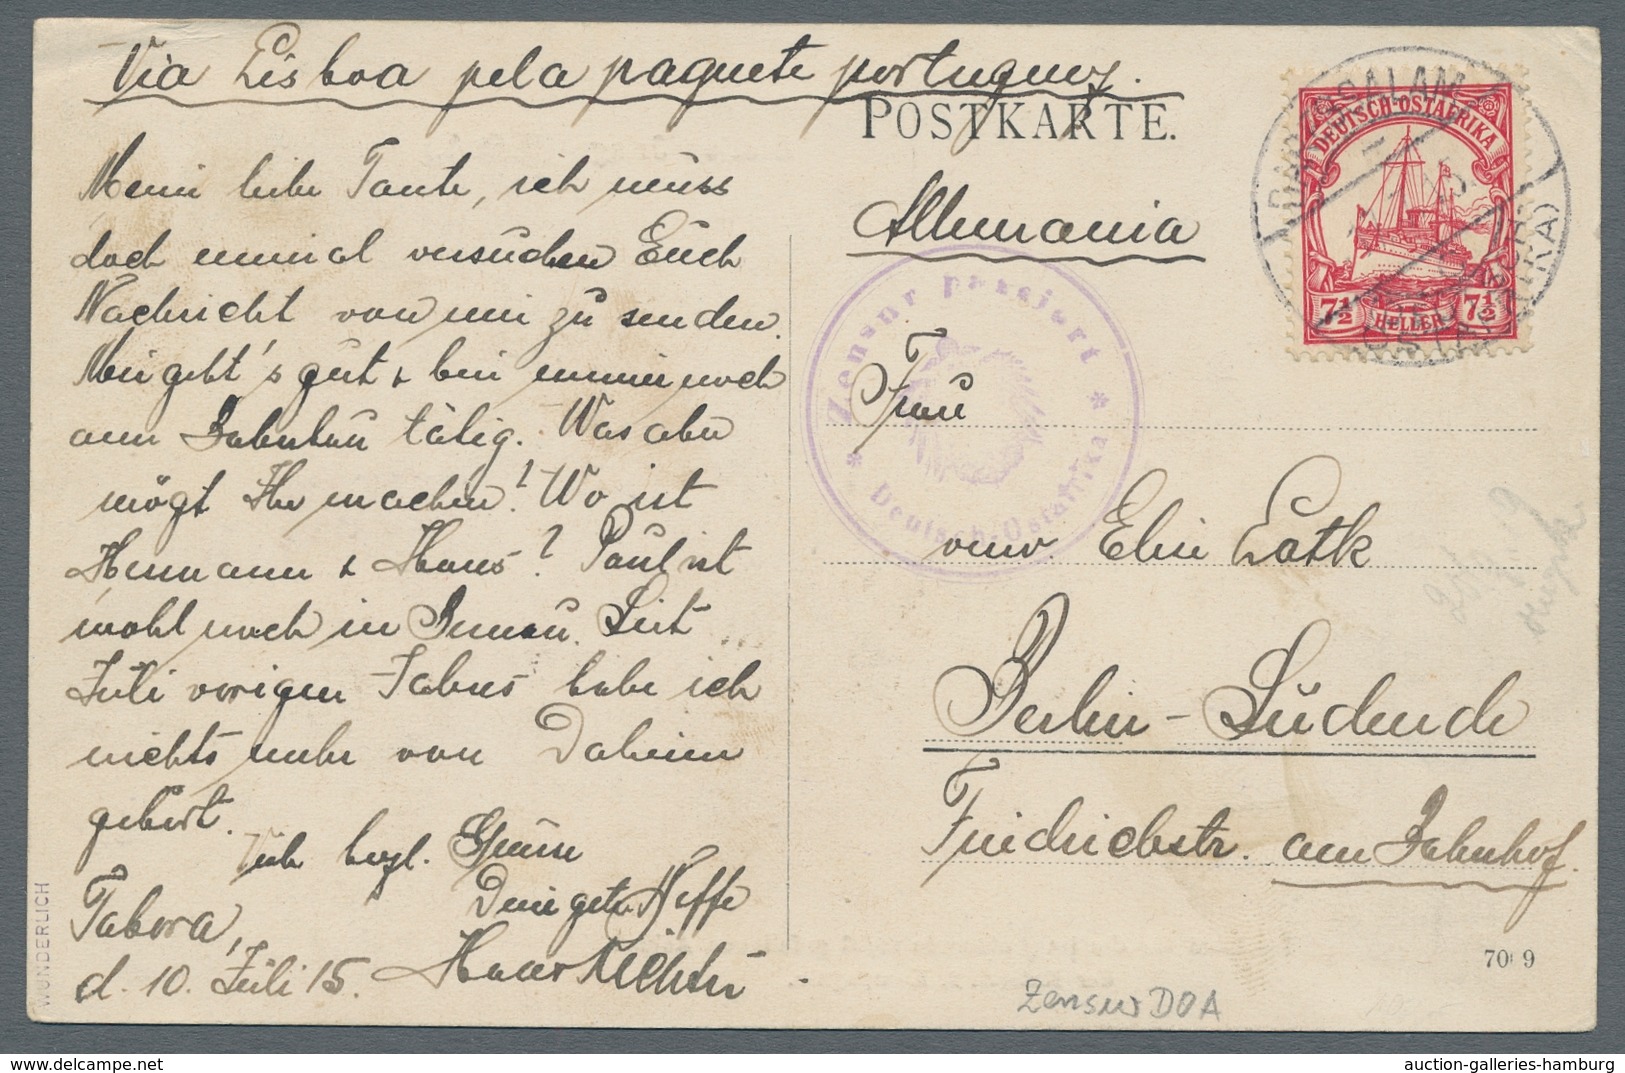 Via Lisboa pela paquete portuguez.
POSTKARTE.
Allemania
Meine liebe Tante, ich muss
doch einmal versuchen Euch
Nachricht von mir zu senden.
Mir geht's gut & bin immer noch
am Bahnbau tätig. Was aber
mögt Ihr machen? Wo ist
Hermann & Hans? Paul ist
wohl noch in Ilmenau. Seit
Juli vorigen Jahres habe ich
nichts mehr von Daheim
gehört.
Viele herzl. Grüsse
Dein getr. Neffe
Hans Richter
Tabora,
d. 10. Juli 15.
WUNDERLICH
DEUTSCH-OSTAFRIKA
7½ HELLER 7½
DARESSALAM
Zensur passiert
* Deutsch-Ostafrika *
Frau
verw. Elise Latk
Berlin-Südende
Friedrichstr. am Bahnhof.
70 9
Zensur DOA
auction-galleries-hamburg
auction-galleries-hamburg.com